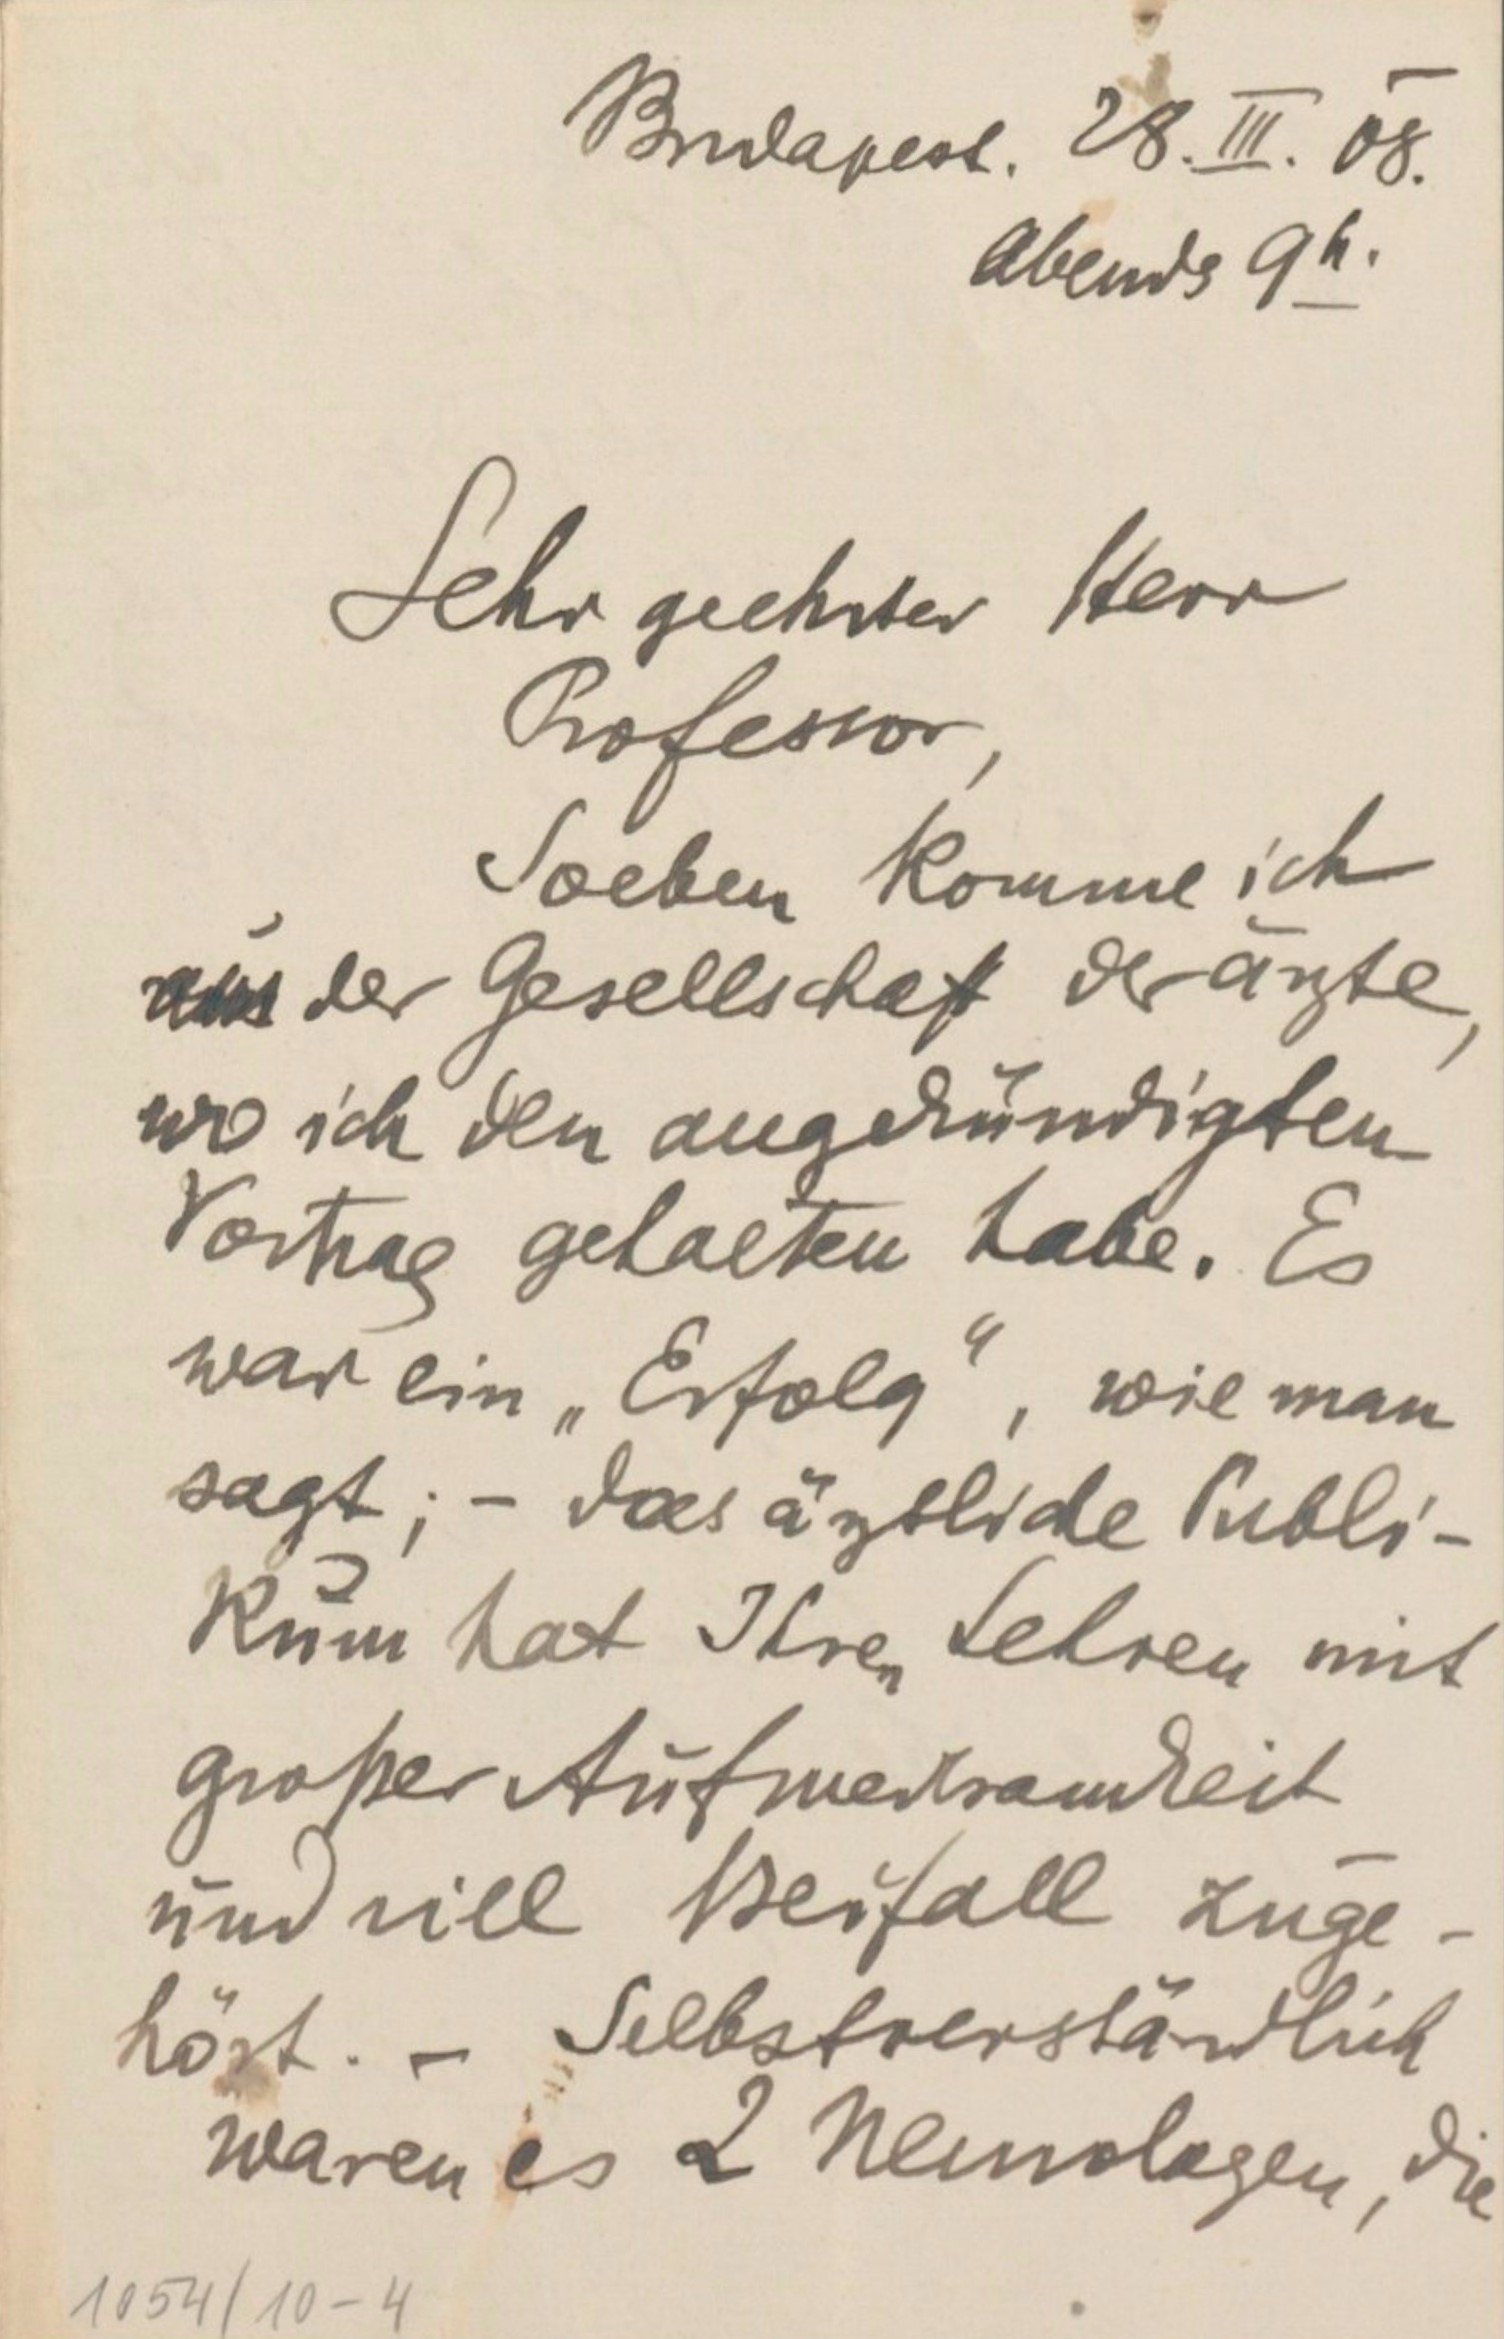 Budapest. 28. III. 08.
Abends 9h.
Sehr geehrter Herr
Professor,
Soeben komme ich
aus der Gesellschaft der Ärzte,
wo ich den angekündigten
Vortrag gehalten habe. Es
war ein „Erfolg“, wie man
sagt; – das ärztliche Publi-
kum hat Ihren Lehren mit
großer Aufmerksamkeit
und viell Beifall zuge-
hört. – Selbstverständlich
waren es 2 Neurologen, die
1054/10-4